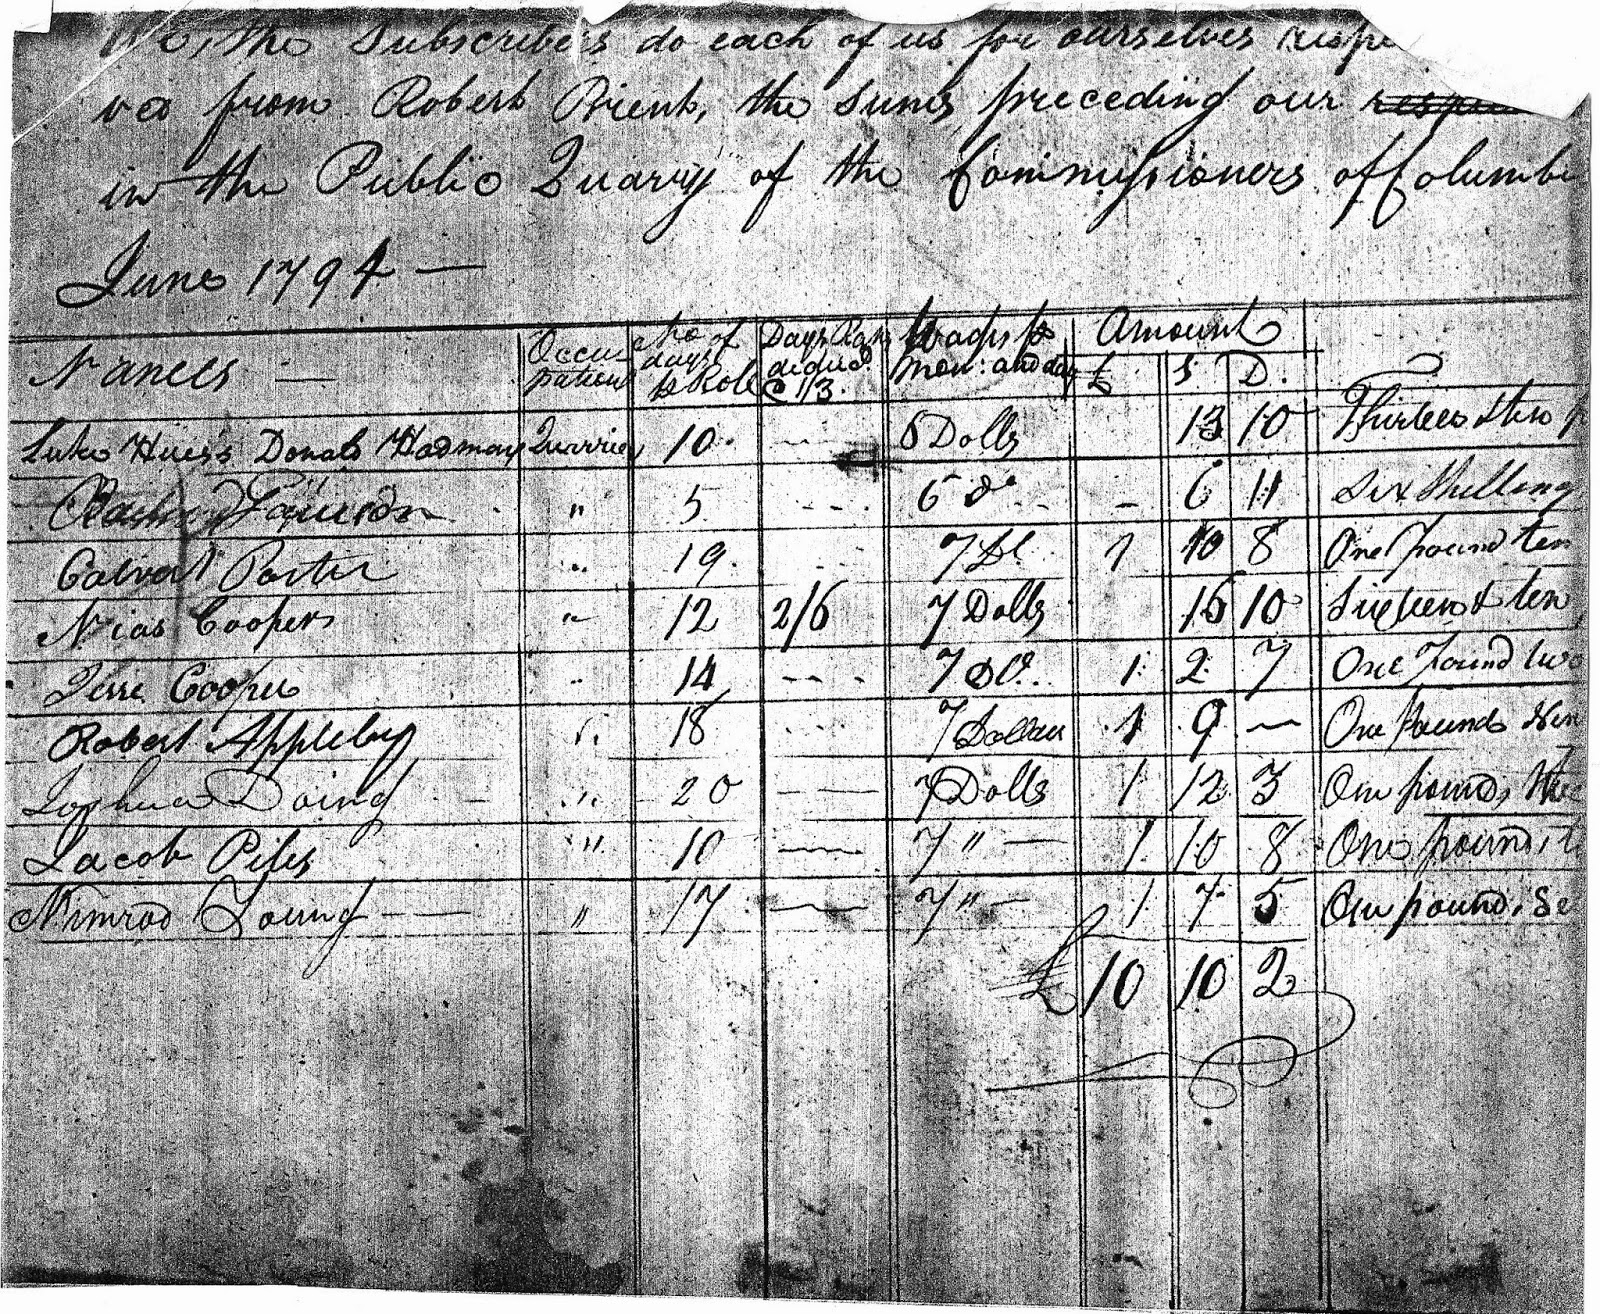 We, the Subscribers do each of us for ourselves
ved from Robert Brent, the sums preceding our
in the Public Quarry of the Commissioners of Columbi
June 1794 —
Names — Occupation No of days p Role Days Rations dedu @ 1/3. Wages p mon: and day Amount £ S D.
Luke Donab Hodman Quarrier 10. 6 Dolls 13 10 Thirteen & ten p
" 5 6 do - 6 11 Six Shilling
Calvert Porter " 19. 7 Dl 1 10 8 One pound ten
Nias Cooper " 12 2/6 7 Dolls 16 10 Sixteen & ten
Jesse Cooper " 14 7 Dl. 1 2 7 One Pound two
Robert Appleby " 18 7 Dollars 1 9 — One pounds Nin
Joshua Doing " 20 7 Dolls 1 12 3 One pound,
Jacob Piles " 10 7 " — 1 10 8 One pound,
Nimrod Young — — " 17 7 " — 1 7 5 One pound, Se
£ 10 10 2